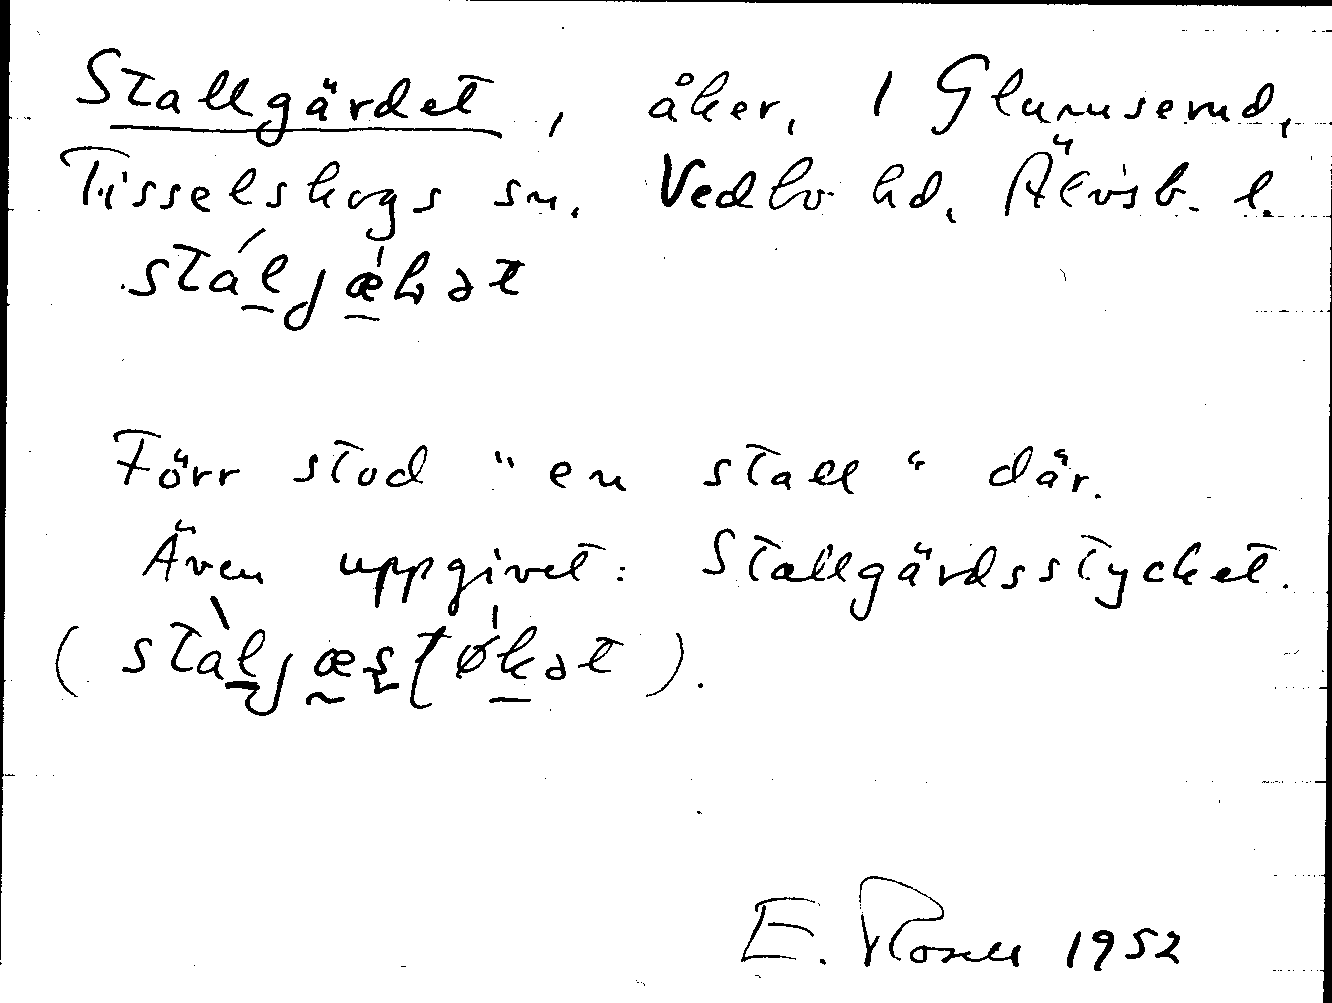 Stallgärdet, åker, 1 Glumserud,
Tisselskogs sn. Vedbo hd. Älvsb. l.
Förr stod "en stall" där.
Även uppgivet: Stallgärdsstycket.
E. Rosell 1952